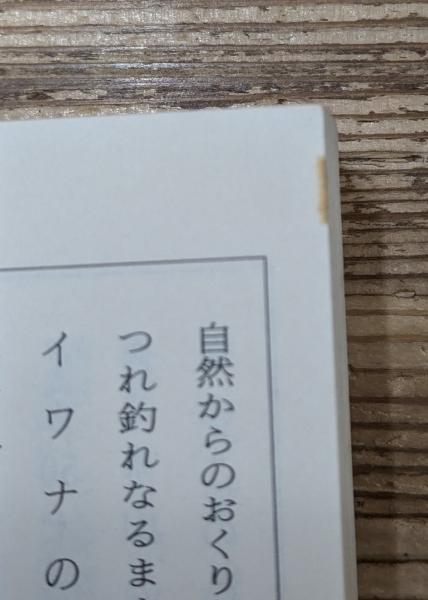 自然からのおくり
つれ釣れなるま
イワナの